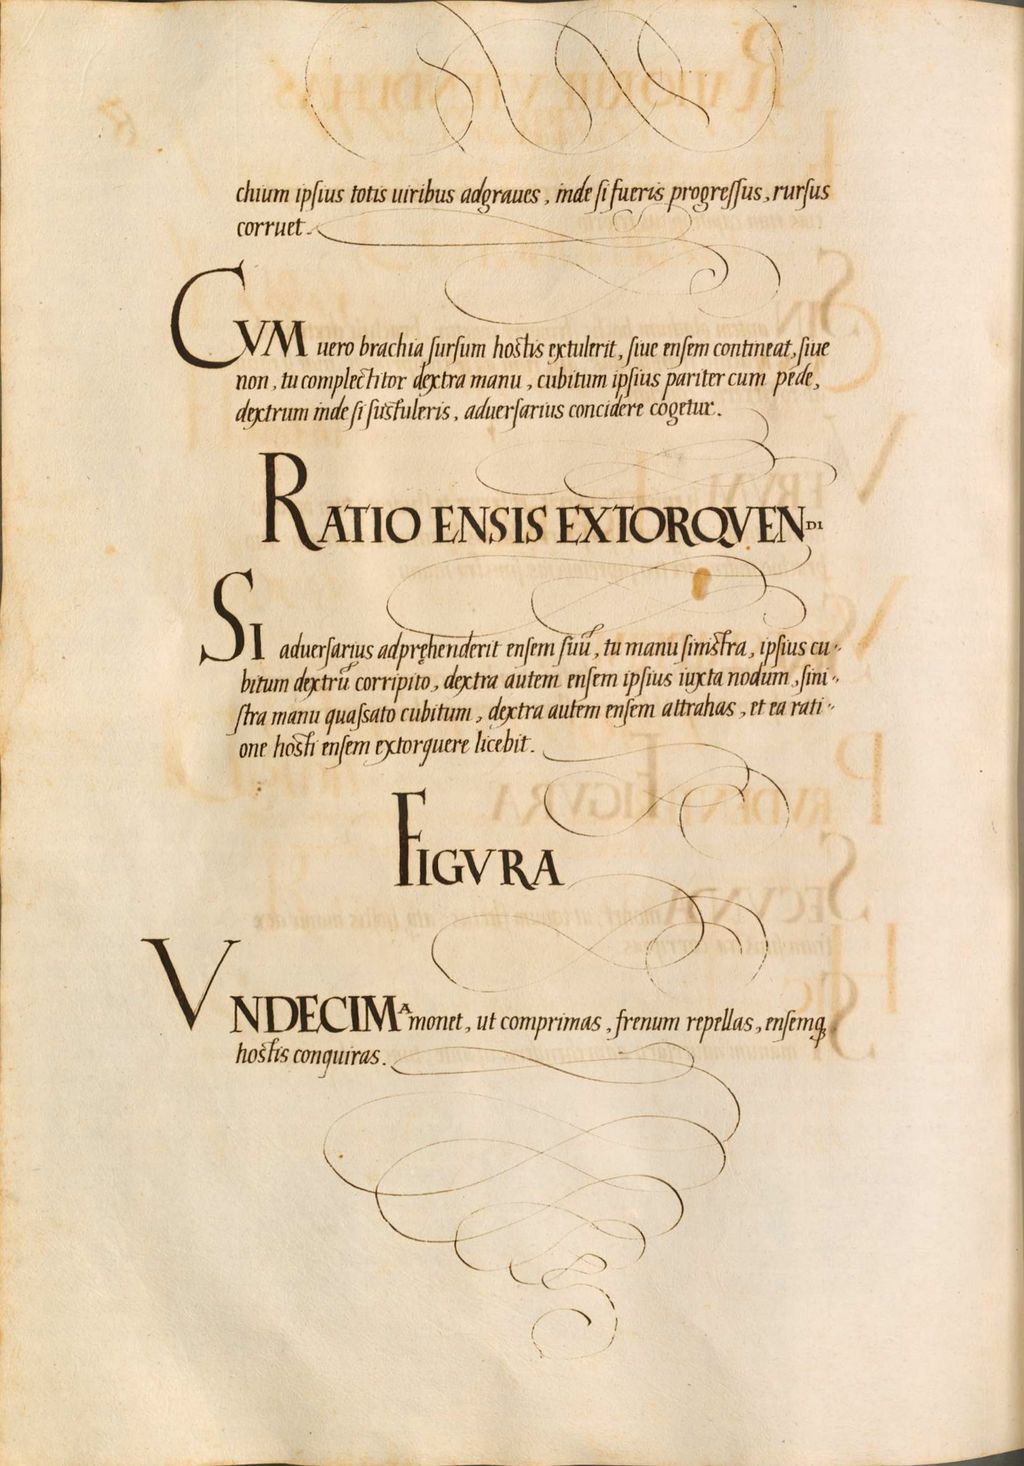 chium ipsius totis uiribus adgraues, inde si fueris progressus, rursus
corruet.
CVM uero brachia sursum hostis extulerit, siue ensem contineat, siue
non, tu complectitor dextra manu, cubitum ipsius pariter cum pede,
dextrum inde si sustuleris, aduersarius concidere cogetur.
RATIO ENSIS EXTORQVENDI
SI aduersarius adpręhenderit ensem suū, tu manu sinistra, ipsius cu-
bitum dextrū corripito, dextra autem ensem ipsius iuxta nodum, sini-
stra manu quassato cubitum, dextra autem ensem attrahas, et ea rati-
one hosti ensem extorquere licebit.
FIGVRA
VNDECIMA monet, ut comprimas, frenum repellas, ensemqꝫ
hostis conquiras.